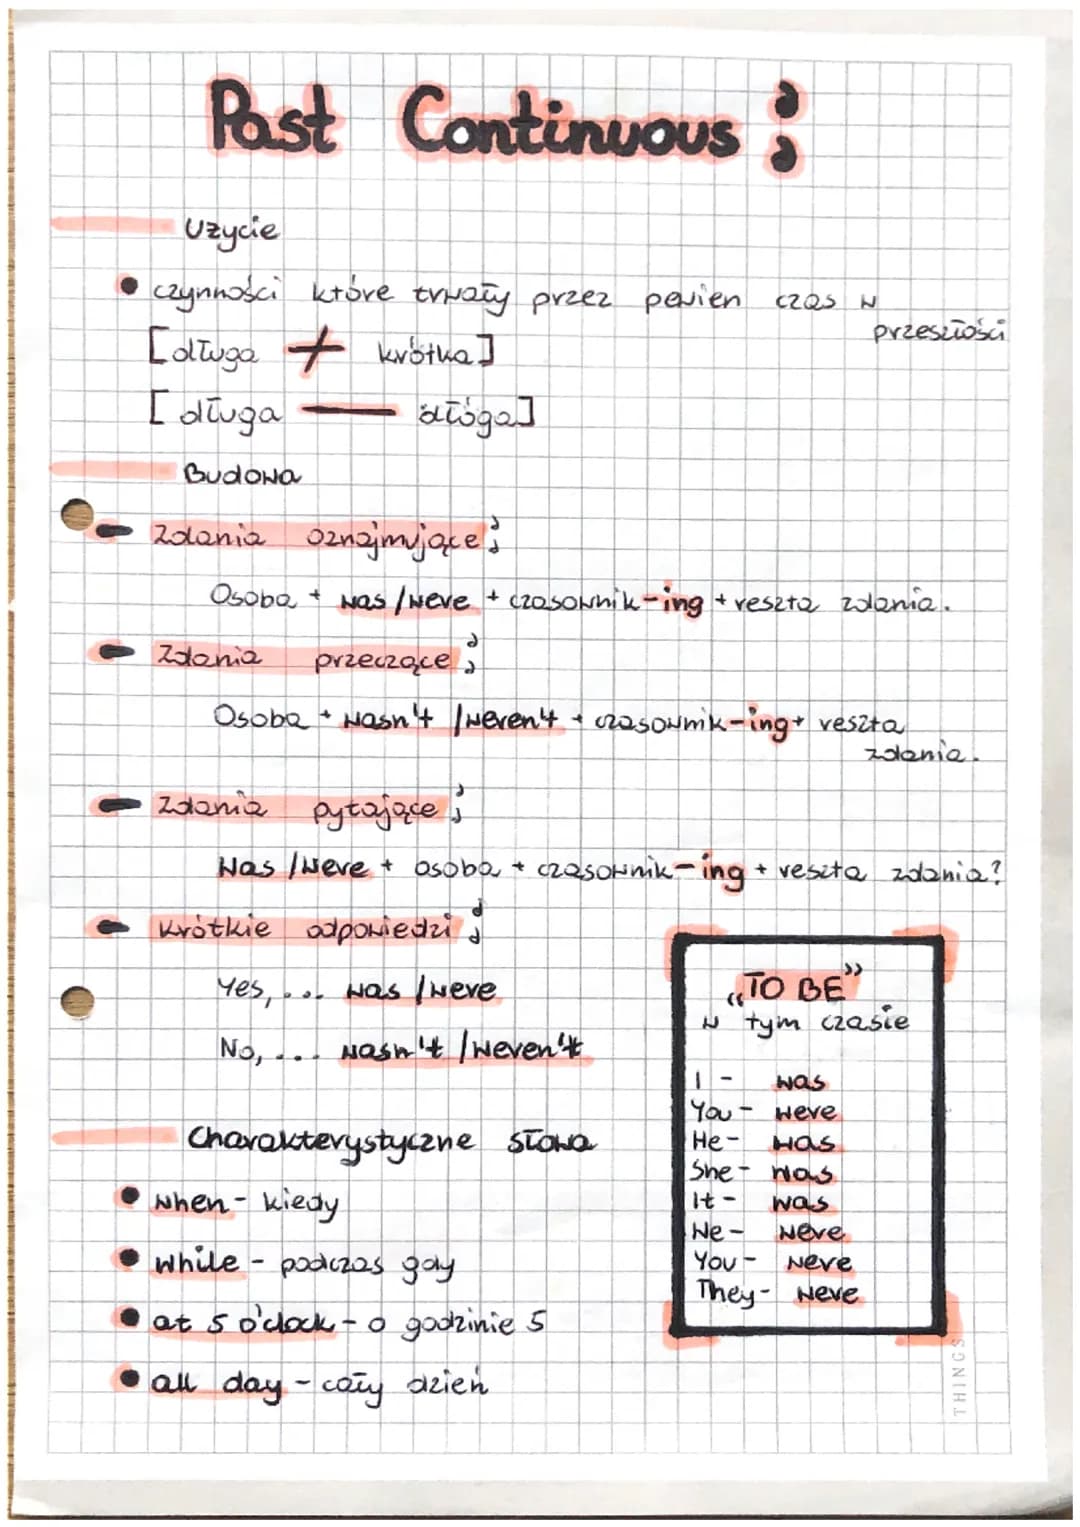 Past Continuous:
Użycie
• czynności które trwały przez pewien czas w
przeszłości
[długa + krótka]
[długa — dłóga]
Budowa
- Zdania oznajmujące:
Osoba + was/were + czasownik-ing + reszta zdania.
- Zdania przeczące:
Osoba + wasn't/weren't + czasownik-ing + reszta
zdania.
- Zdania pytające:
Was/Were + osoba + czasownik-ing + reszta zdania?
- Krótkie odpowiedzi:
Yes, ... was/were
No, ... wasn't/weren't
„TO BE”
w tym czasie
I - was
You - were
He - was
She - was
It - was
We - were
You - were
They - were
Charakterystyczne słowa
• when - kiedy
• while - podczas gdy
• at 5 o'clock - o godzinie 5
• all day - cały dzień
THINGS